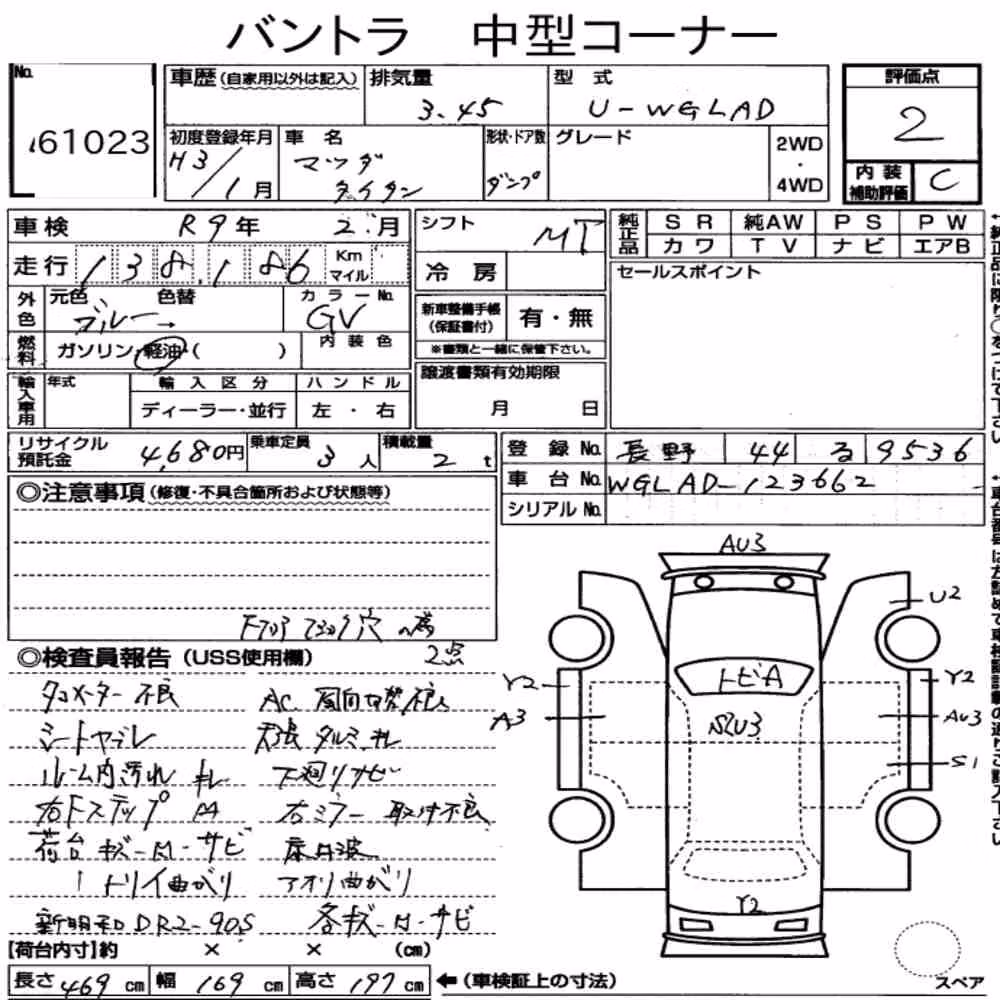 バントラ 中型コーナー
No. 61023
車歴(自家用以外は記入)
排気量 3.45
型式 U-WGLAD
評価点 2
初度登録年月 H3/1月
車名 マツダ タイタン
形状・ドア数 ダンプ
グレード
2WD・4WD
内装補助評価 C
車検 R9年2月
シフト MT
純正品 SR 純AW PS PW
カワ TV ナビ エアB
走行 138,186 Km マイル
冷房
セールスポイント
外色 元色 ブルー→ 色替 カラーNo. GV
新車整備手帳(保証書付) 有・無
※書類と一緒に保管下さい。
燃料 ガソリン・軽油・( ) 内装色
輸入車用 年式 輸入区分 ハンドル
ディーラー・並行 左・右
譲渡書類有効期限 月 日
リサイクル預託金 4,680円 乗車定員 3人 積載量 2t
登録No. 長野 44 る 9536
車台No. WGLAD-123662
シリアルNo.
◎注意事項(修復・不具合箇所および状態等)
◎検査員報告(USS使用欄) 2点
タコメーター不良 AC
シートヤブレ
ルーム内汚れ キレ 下廻りサビ
右Fステップ 右ミラー取付不良
荷台キズ-M-サビ 床凹波
トリイ曲がり アオリ曲がり
新明和 DR2-90S 各キズ-M-サビ
【荷台内寸】約 × × (cm)
長さ469cm 幅169cm 高さ197cm ←(車検証上の寸法)
AU3
U2
トビA
Y2 Y2
A3 AU3
SU3
S1
Y2
スペア